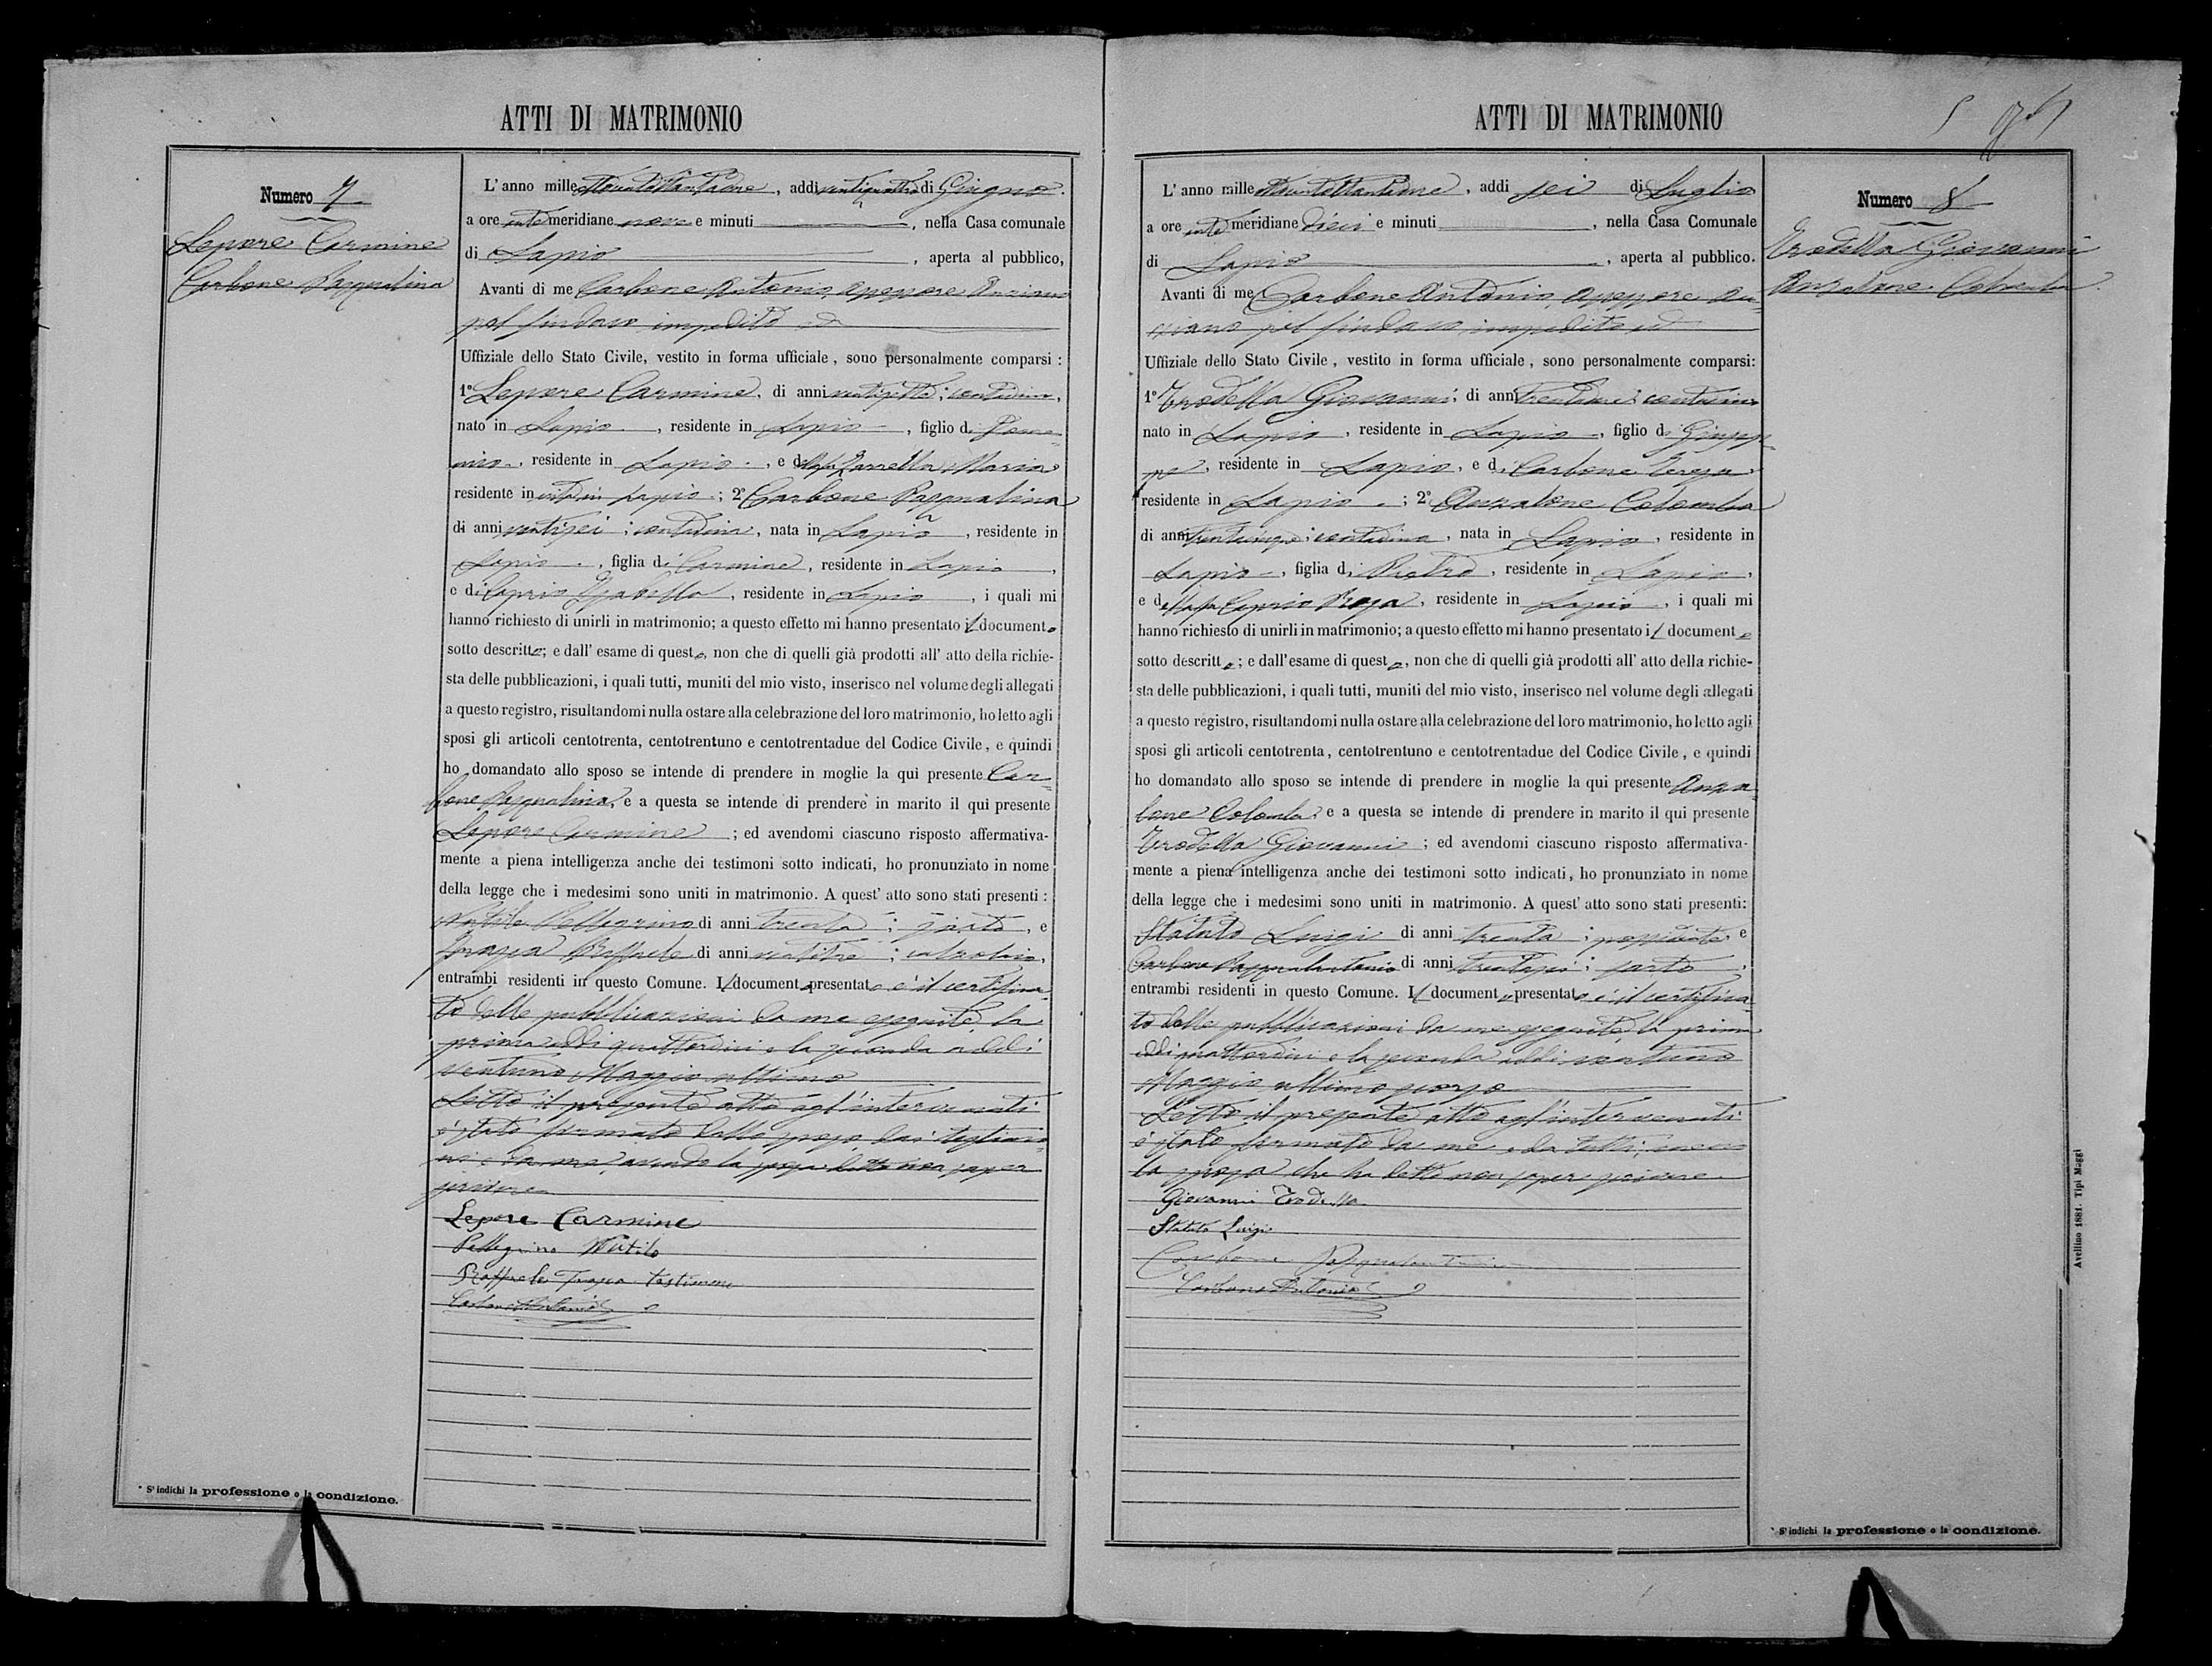 ATTI DI MATRIMONIO
Numero 7
Lepore Carmine
Carbone Pasqualina
L' anno mille ottocentottantadue, addi ventiquattro di Giugno
a ore ante meridiane nove e minuti , nella Casa comunale
di Lapio , aperta al pubblico,
Avanti di me Carbone Antonio, assessore Anziano
pel sindaco impedito
Uffiziale dello Stato Civile, vestito in forma ufficiale, sono personalmente comparsi :
1º Lepore Carmine, di anni ventisette ; contadino,
nato in Lapio , residente in Lapio , figlio di
, residente in Lapio , e della fu Zarrella Maria
residente in vita in Lapio ; 2º Carbone Pasqualina
di anni ventisei ; contadina, nata in Lapio , residente in
Lapio , figlia di Carmine, residente in Lapio ,
e di Caprio Isabella, residente in Lapio , i quali mi
hanno richiesto di unirli in matrimonio; a questo effetto mi hanno presentato il documento
sotto descritto; e dall' esame di questo, non che di quelli già prodotti all' atto della richie-
sta delle pubblicazioni, i quali tutti, muniti del mio visto, inserisco nel volume degli allegati
a questo registro, risultandomi nulla ostare alla celebrazione del loro matrimonio, ho letto agli
sposi gli articoli centotrenta, centotrentuno e centotrentadue del Codice Civile, e quindi
ho domandato allo sposo se intende di prendere in moglie la qui presente Car=
bone Pasqualina, e a questa se intende di prendere in marito il qui presente
Lepore Carmine ; ed avendomi ciascuno risposto affermativa-
mente a piena intelligenza anche dei testimoni sotto indicati, ho pronunziato in nome
della legge che i medesimi sono uniti in matrimonio. A quest' atto sono stati presenti :
Pellegrino di anni trenta ; sarto , e
Raffaele di anni ventitre ; calzolaio,
entrambi residenti in questo Comune. Il documento presentato è il certifica=
to delle pubblicazioni da me eseguite, la
prima addi quattordici e la seconda addi
ventuno Maggio ultimo
Letto il presente atto agl'intervenuti
è stato firmato dallo sposo, dai testimo
ni e da me, avendo la sposa detto non saper
scrivere
Lepore Carmine
Pellegrino
Raffaele testimone
Carbone Antonio
* S' indichi la professione o la condizione.
ATTI DI MATRIMONIO
5
Numero 8
Trodella Giovanni
Anzalone Colomba
L' anno mille ottocentottantadue, addi sei di Luglio
a ore ante meridiane dieci e minuti , nella Casa Comunale
di Lapio , aperta al pubblico.
Avanti di me Carbone Antonio, assessore An=
ziano pel sindaco impedito
Uffiziale dello Stato Civile, vestito in forma ufficiale, sono personalmente comparsi:
1º Trodella Giovanni, di anni trentadue ; contadino
nato in Lapio , residente in Lapio , figlio di Giusep=
pe , residente in Lapio, e di Carbone Teresa
residente in Lapio ; 2º Anzalone Colomba
di anni trentacinque ; contadina, nata in Lapio , residente in
Lapio , figlia di Pietro , residente in Lapio ,
e della fu Caprio Rosa, residente in Lapio , i quali mi
hanno richiesto di unirli in matrimonio; a questo effetto mi hanno presentato il documento
sotto descritto; e dall'esame di questo, non che di quelli già prodotti all' atto della richie-
sta delle pubblicazioni, i quali tutti, muniti del mio visto, inserisco nel volume degli allegati
a questo registro, risultandomi nulla ostare alla celebrazione del loro matrimonio, ho letto agli
sposi gli articoli centotrenta, centotrentuno e centotrentadue del Codice Civile, e quindi
ho domandato allo sposo se intende di prendere in moglie la qui presente Anza=
lone Colomba, e a questa se intende di prendere in marito il qui presente
Trodella Giovanni ; ed avendomi ciascuno risposto affermativa-
mente a piena intelligenza anche dei testimoni sotto indicati, ho pronunziato in nome
della legge che i medesimi sono uniti in matrimonio. A quest' atto sono stati presenti:
Statuto Luigi di anni trenta ; possidente e
Carbone Pasqualantonio di anni trentasei ; sarto ,
entrambi residenti in questo Comune. Il documento presentato è il certifica=
to delle pubblicazioni da me eseguite, la prima
addi quattordici e la seconda addi ventuno
Maggio ultimo scorso
Letto il presente atto agl'intervenuti
è stato firmato da me e da tutti, meno
la sposa che ha detto non saper scrivere
Giovanni Trodella
Statuto Luigi
Carbone Pasqualantonio
Carbone Antonio
* S' indichi la professione o la condizione.
Avellino 1881. Tipi Maggi